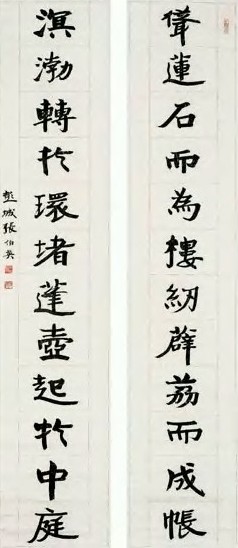 耸蓮石而為樓紉薜荔而成帳
溟渤轉於環堵蓬壺起於中庭
彭城張伯英